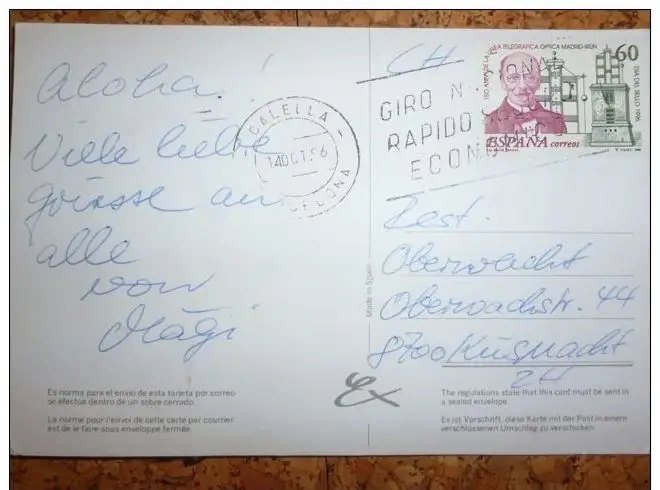 Aloha!
Viele liebe
grüsse an
alle
von
Mägi
CALELLA
14 OCT. 96
BARCELONA
CH
GIRO NACIONAL
RAPIDO
ECONOMICO
150 ANYS DE LA LINEA TELEGRAFICA OPTICA MADRID-IRUN
60
DIA DEL SELLO 1996
ESPAÑA correos
Rest.
Oberwacht
Oberwachtstr. 44
8700 Küsnacht
ZH
Made in Spain
Ex
Es norma para el envio de esta tarjeta por correo
se efectúe dentro de un sobre cerrado.
La norme pour l'envoi de cette carte par courrier
est de le faire sous enveloppe fermée.
The regulations state that this card must be sent in
a sealed envelope.
Es ist Vorschrift, diese Karte mit der Post in einem
verschlossenen Umschlag zu verschicken.